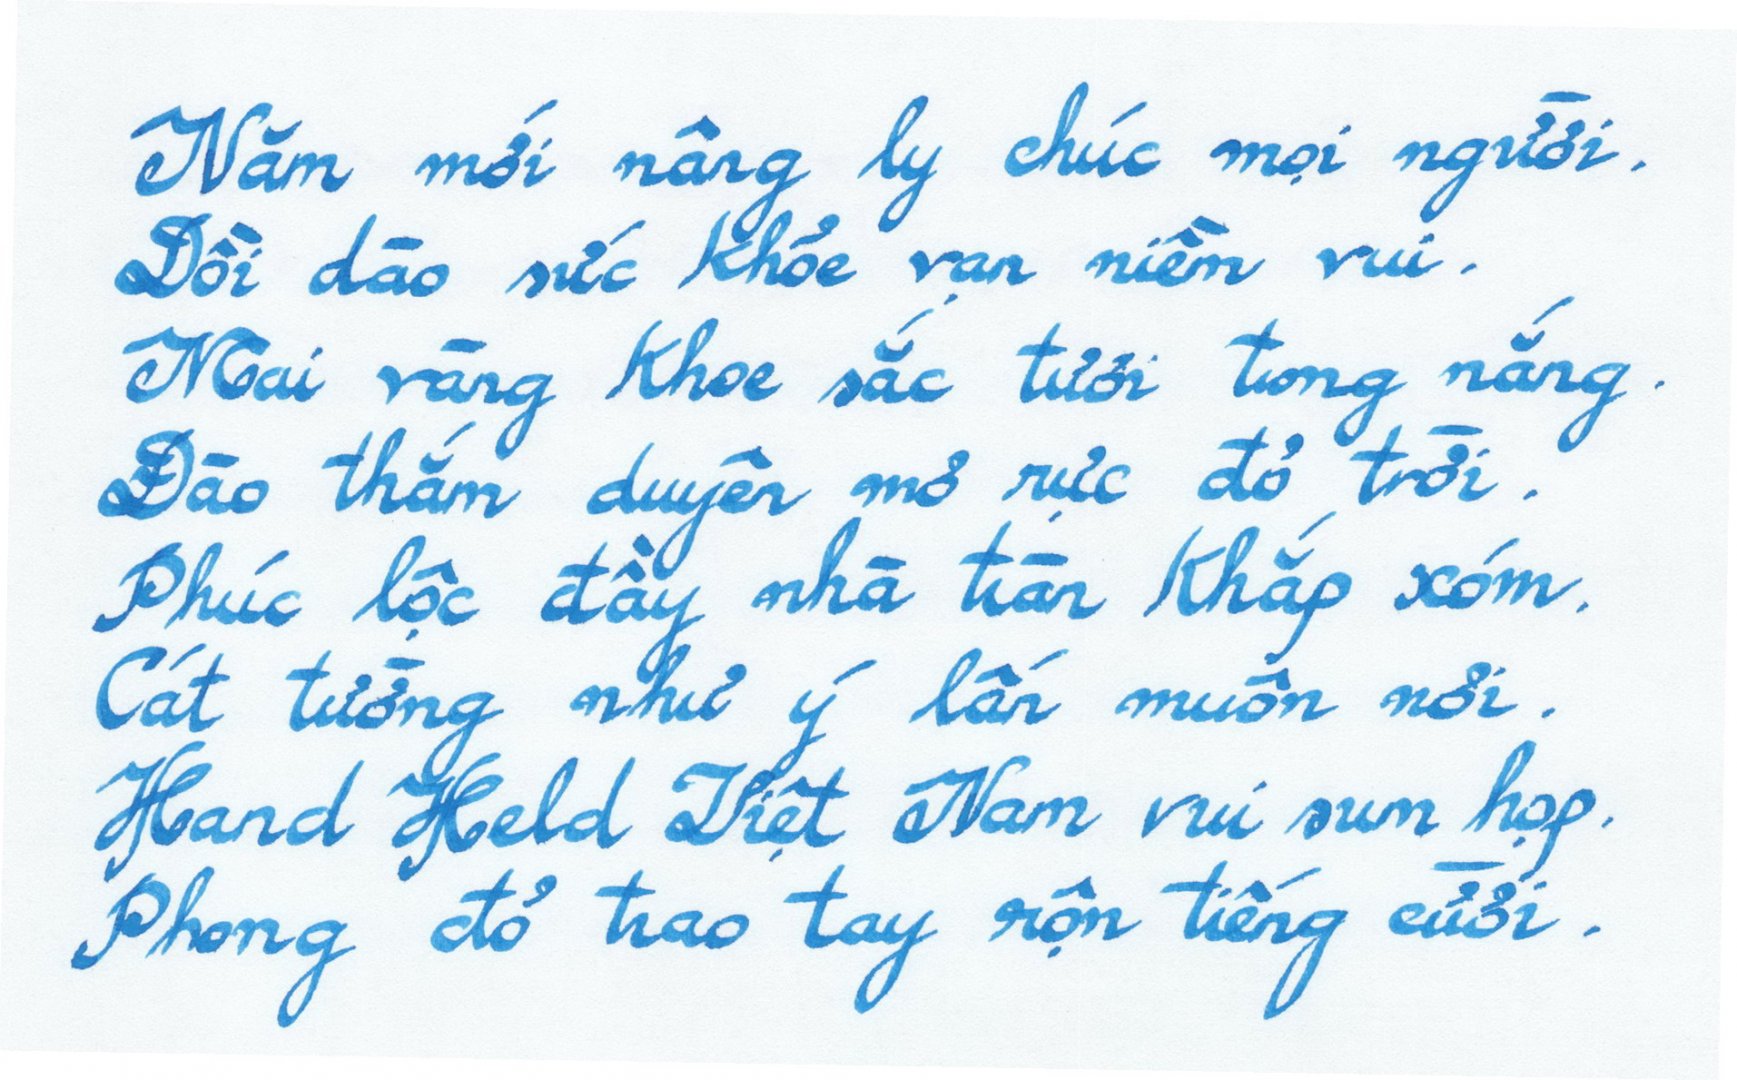 Năm mới nâng ly chúc mọi người.
Dồi dào sức khỏe vạn niềm vui.
Mai vàng khoe sắc tươi trong nắng.
Đào thắm duyên mơ rực đỏ trời.
Phúc lộc đầy nhà tràn khắp xóm.
Cát tường như ý lấn muôn nơi.
Hand Held Việt Nam vui sum họp.
Phong đỏ trao tay rộn tiếng cười.